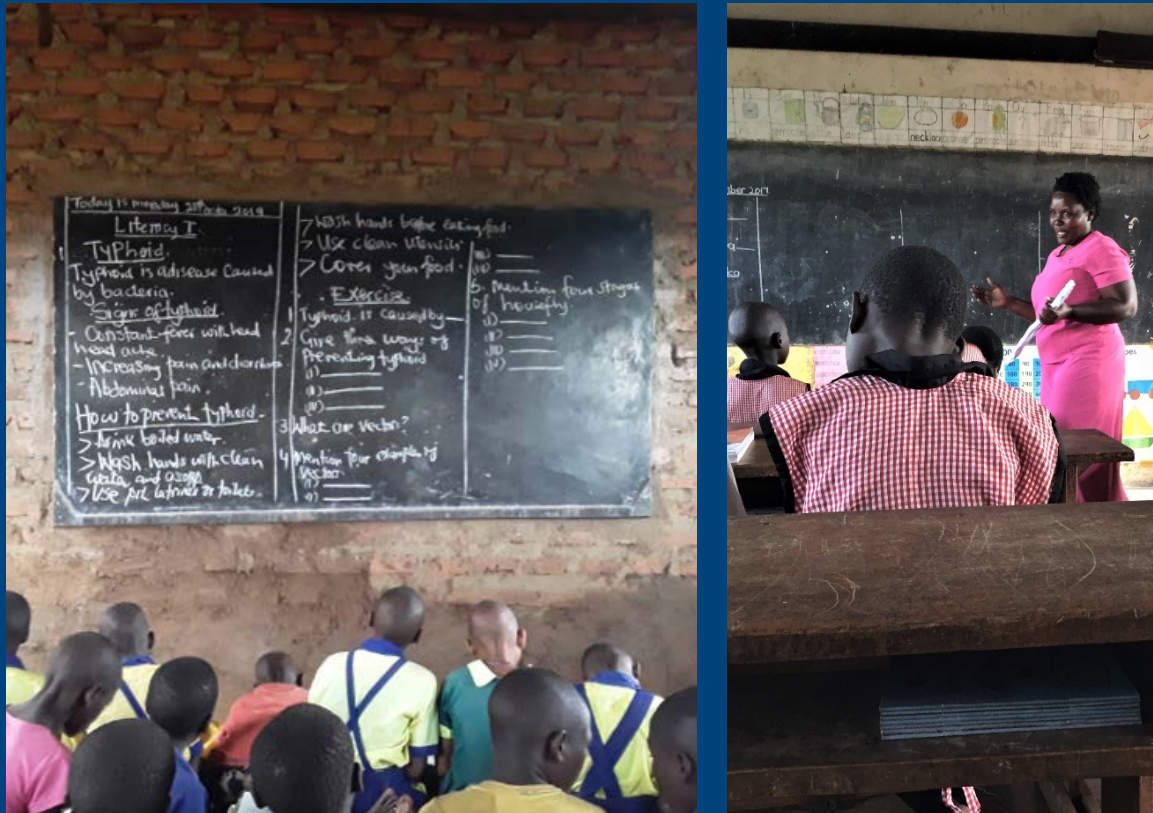 Today is monday 2019
Literacy I
Typhoid.
Typhoid is a disease caused
by bacteria.
Signs of typhoid.
- Constant fever with head
head ache.
- Increasing pain and
- Abdominal pain.
How to prevent typhoid.
> drink boiled water.
> Wash hands with clean
and
> Use pit latrines or toilets.
> Wash hands before eating food.
> Use clean utensils
> Cover your food.
Exercise
1 Typhoid is caused by
2 Give three ways of
Preventing typhoid
(i)
3 What are vector?
4 Mention four examples of
vectors
(i)
(iii)
(iv)
5. Mention four stages
of housefly
(i)
(ii)
(iii)
(iv)
necklace
ber 2017